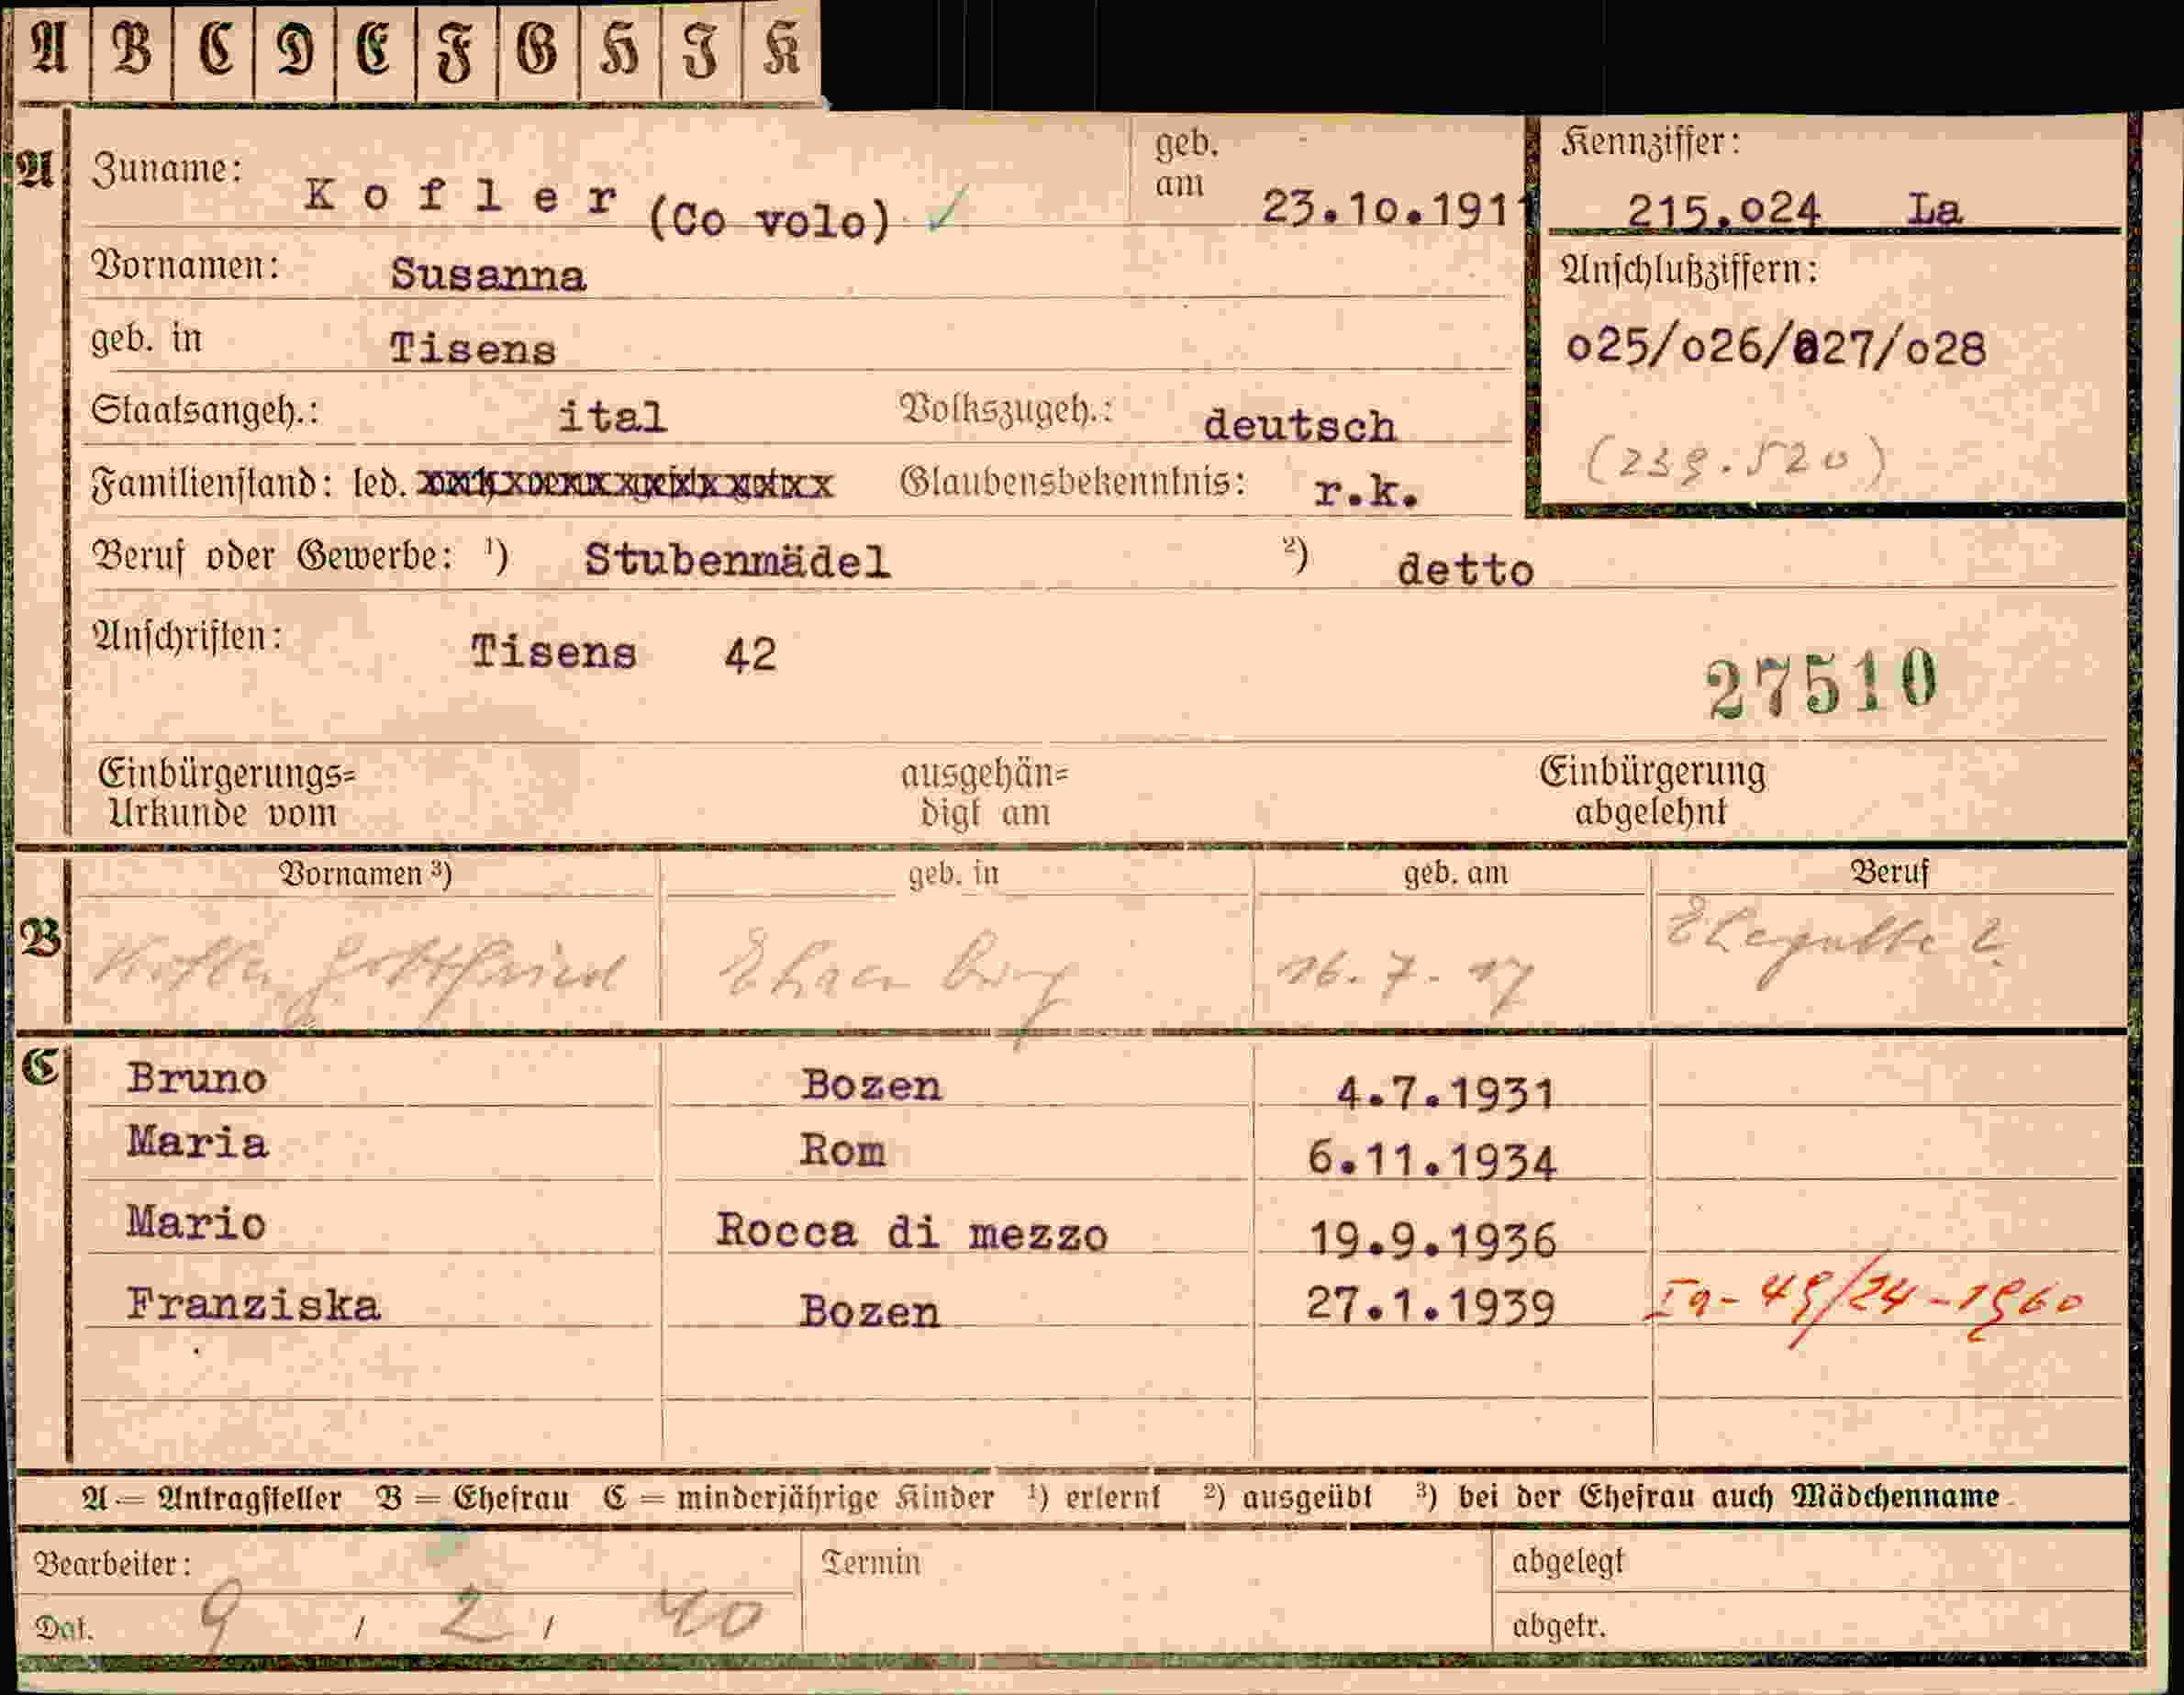 A B C D E F G H I K
A Zuname: Kofler (Co volo) ✓ geb. am 23.10.1911
Kennziffer: 215.o24 La
Vornamen: Susanna
Anschlußziffern:
geb. in Tisens
o25/o26/o27/o28
Staatsangeh.: ital Volkszugeh.: deutsch
(239.520)
Familienstand: led. Glaubensbekenntnis: r.k.
Beruf oder Gewerbe: ¹) Stubenmädel ²) detto
Anschriften: Tisens 42
27510
Einbürgerungs= ausgehän= Einbürgerung
Urkunde vom digt am abgelehnt
Vornamen ³) geb. in geb. am Beruf
B Kofler Gottfried Ehrenburg 16.7.17 Ehegatte
C Bruno Bozen 4.7.1931
Maria Rom 6.11.1934
Mario Rocca di mezzo 19.9.1936
Franziska Bozen 27.1.1939 Ia-49/24-1960
A = Antragsteller B = Ehefrau C = minderjährige Kinder ¹) erlernt ²) ausgeübt ³) bei der Ehefrau auch Mädchenname
Bearbeiter: Termin abgelegt
Dat. 9 / 2 / 40 abgetr.